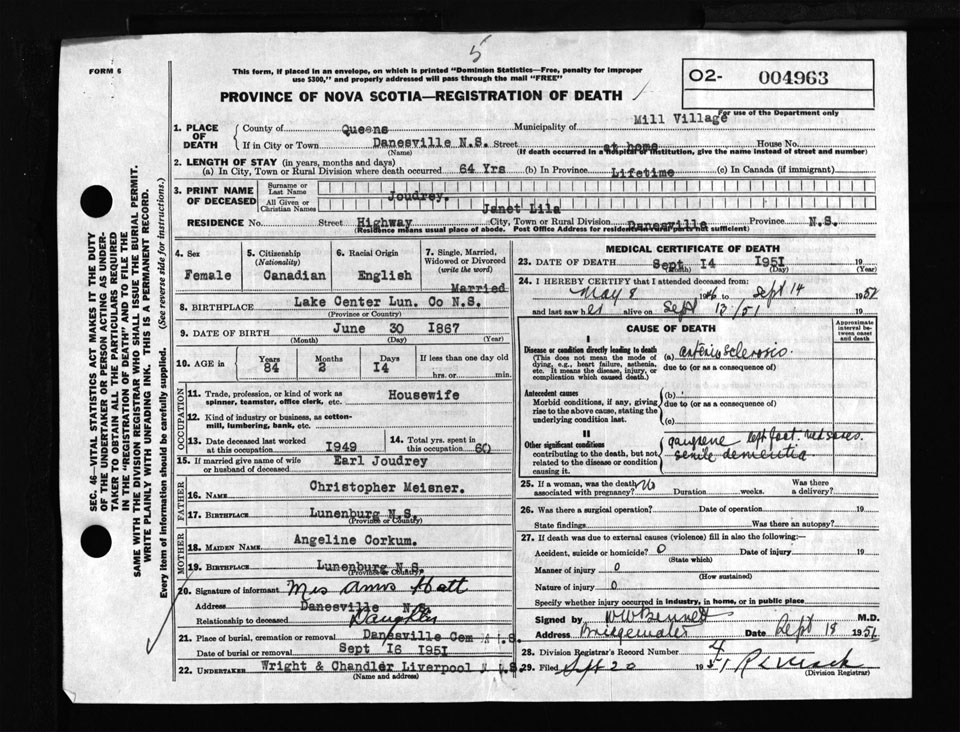 5
FORM 6
This form, if placed in an envelope, on which is printed "Dominion Statistics—Free, penalty for improper
use $300," and properly addressed will pass through the mail "FREE"
PROVINCE OF NOVA SCOTIA—REGISTRATION OF DEATH
O2- 004963
For use of the Department only
SEC. 46—VITAL STATISTICS ACT MAKES IT THE DUTY
OF THE UNDERTAKER OR PERSON ACTING AS UNDER-
TAKER TO OBTAIN ALL THE PARTICULARS REQUIRED
IN THE "REGISTRATION OF DEATH" AND TO FILE THE
SAME WITH THE DIVISION REGISTRAR WHO SHALL ISSUE THE BURIAL PERMIT.
WRITE PLAINLY WITH UNFADING INK. THIS IS A PERMANENT RECORD.
Every item of information should be carefully supplied. (See reverse side for instructions.)
1. PLACE OF DEATH
County of Queens Municipality of Mill Village
If in City or Town Danesville N.S. Street at home House No.
(Name) (If death occurred in a hospital or institution, give the name instead of street and number)
2. LENGTH OF STAY (in years, months and days)
(a) In City, Town or Rural Division where death occurred 64 Yrs (b) In Province Lifetime (c) In Canada (if immigrant)
3. PRINT NAME OF DECEASED
Surname or Last Name Joudrey.
All Given or Christian Names Janet Lila
RESIDENCE No. Street Highway City, Town or Rural Division Danesville Province N.S.
(Residence means usual place of abode. Post Office Address for residents in rural parts not sufficient)
4. Sex Female
5. Citizenship (Nationality) Canadian
6. Racial Origin English
7. Single, Married, Widowed or Divorced (write the word) Married
8. BIRTHPLACE Lake Center Lun. Co N.S.
(Province or Country)
9. DATE OF BIRTH June 30 1867
(Month) (Day) (Year)
10. AGE in Years 84 Months 2 Days I4 If less than one day old hrs. or min.
OCCUPATION
11. Trade, profession, or kind of work as spinner, teamster, office clerk, etc. Housewife
12. Kind of industry or business, as cotton-mill, lumbering, bank, etc.
13. Date deceased last worked at this occupation I949
14. Total yrs. spent in this occupation 60
15. If married give name of wife or husband of deceased Earl Joudrey
FATHER
16. NAME Christopher Meisner.
17. BIRTHPLACE Lunenburg N.S.
(Province or Country)
MOTHER
18. MAIDEN NAME Angeline Corkum.
19. BIRTHPLACE Lunenburg N.S.
(Province or Country)
20. Signature of informant Mrs Amos Hatt
Address Danesville N.S.
Relationship to deceased Daughter
21. Place of burial, cremation or removal Danesville Cem N.S.
Date of burial or removal Sept I6 I95I
22. UNDERTAKER Wright & Chandler Liverpool N.S.
(Name and address)
MEDICAL CERTIFICATE OF DEATH
23. DATE OF DEATH Sept I4 I95I 19
(Month) (Day) (Year)
24. I HEREBY CERTIFY that I attended deceased from:
May 8 1946 to Sept 14 1951
and last saw her alive on Sept 13/51 19
CAUSE OF DEATH
Approximate interval between onset and death
I
Disease or condition directly leading to death
(This does not mean the mode of dying, e.g., heart failure, asthenia, etc. It means the disease, injury, or complication which caused death.)
(a) arteriosclerosis.
due to (or as a consequence of)
Antecedent causes
Morbid conditions, if any, giving rise to the above cause, stating the underlying condition last.
(b)
due to (or as a consequence of)
(c)
II
Other significant conditions
contributing to the death, but not related to the disease or condition causing it.
gangrene left foot. bed sores.
senile dementia
25. If a woman, was the death associated with pregnancy? No Duration weeks. Was there a delivery?
26. Was there a surgical operation? Date of operation 19
State findings Was there an autopsy?
27. If death was due to external causes (violence) fill in also the following:—
Accident, suicide or homicide? 0 Date of injury 19
(State which)
Manner of injury 0
(How sustained)
Nature of injury 0
Specify whether injury occurred in industry, in home, or in public place
Signed by W W Bennett M.D.
Address Bridgewater Date Sept 18 1951
28. Division Registrar's Record Number 4
29. Filed Sept 20 1951
(Division Registrar)